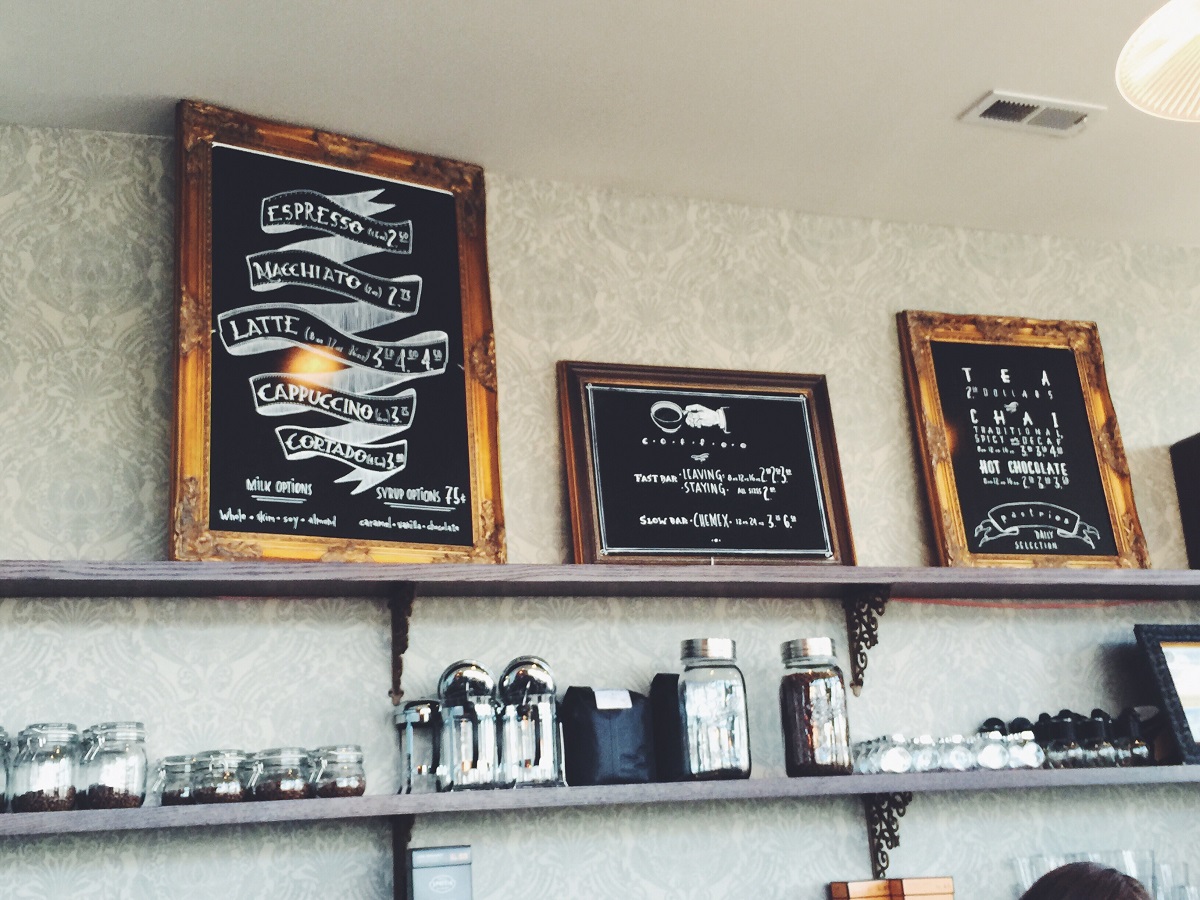 ESPRESSO (2oz) 2.50
MACCHIATO (2oz) 2.75
LATTE (8oz 12oz 16oz) 3.50 4.00 4.50
CAPPUCCINO 3.
CORTADO 3.
MILK OPTIONS
whole • skim • soy • almond
SYRUP OPTIONS 75¢
caramel • vanilla • chocolate
C·O·F·F·E·E
FAST BAR · LEAVING · 8oz 12oz 16oz
STAYING · ALL SIZES 2.
SLOW BAR · CHEMEX · 12oz 24oz 3. 6.
TEA
2. DOLLARS
CHAI
TRADITIONAL
SPICY DECAF
8oz 12oz 16oz
HOT CHOCOLATE
8oz 12oz 16oz
pastries
DAILY
SELECTION